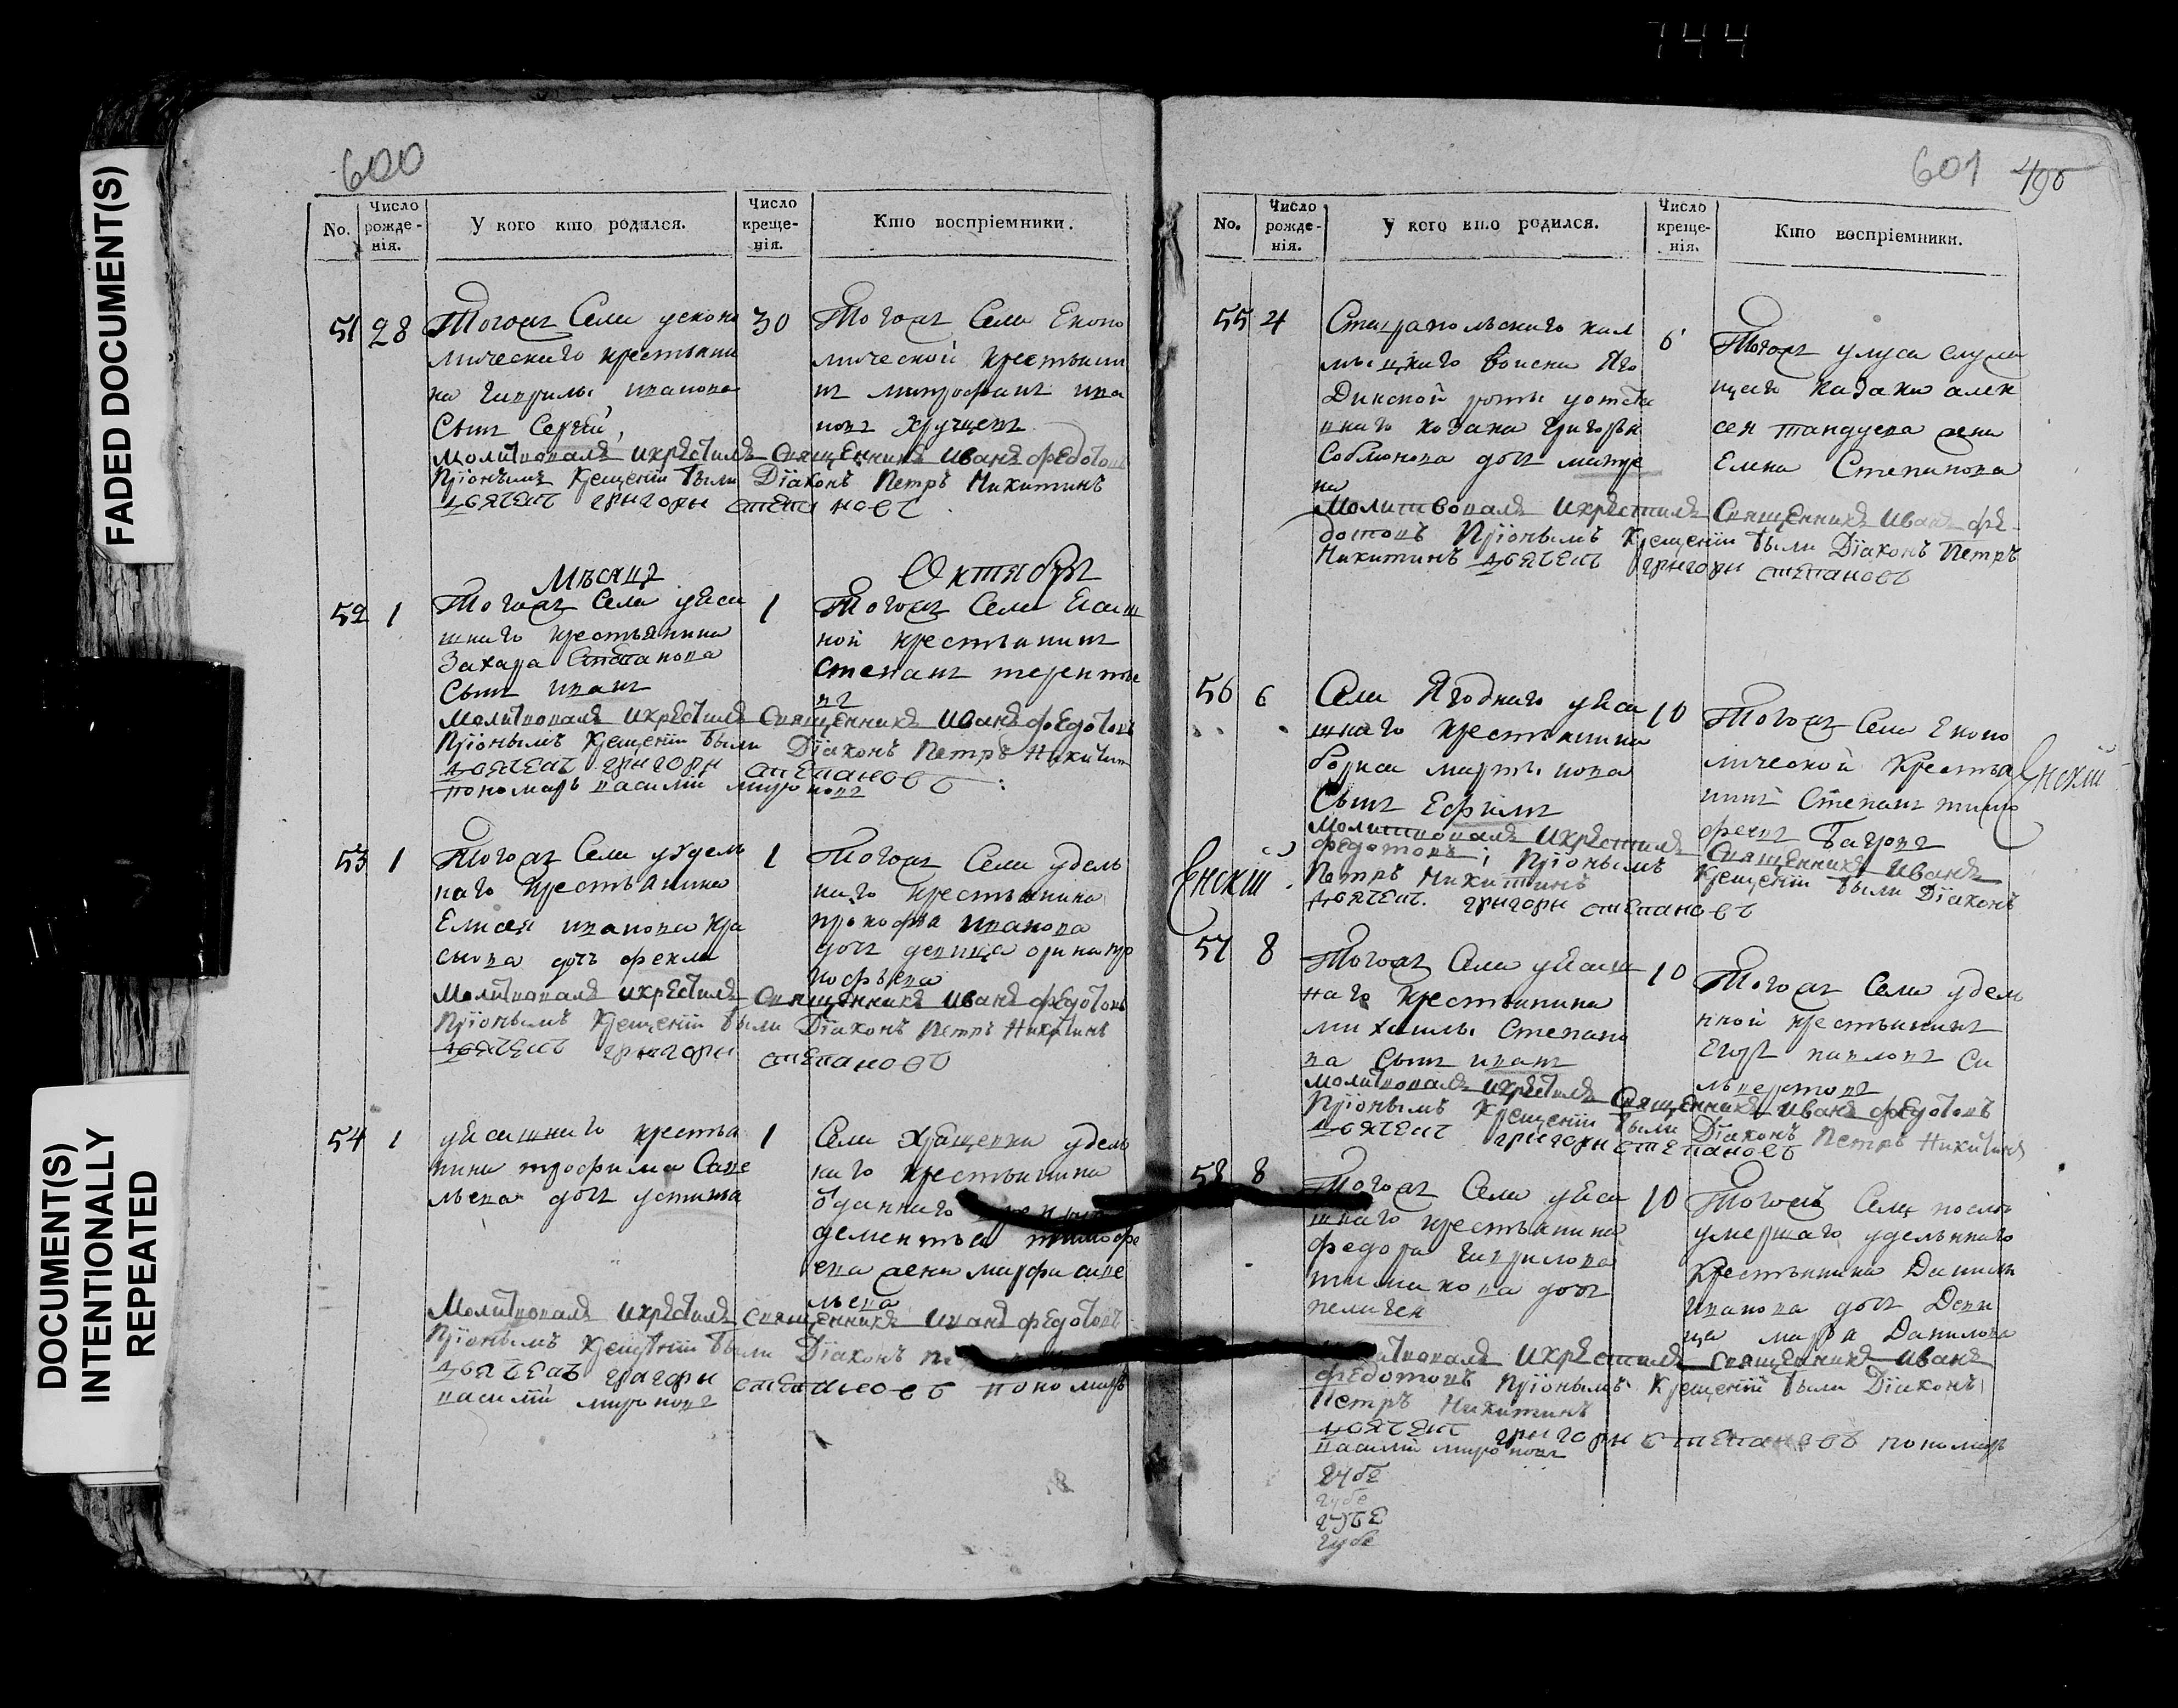 744
FADED DOCUMENT(S)
DOCUMENT(S)
INTENTIONALLY
REPEATED
600
No.
Число рожденія.
У кого кто родился.
Число крещенія.
Кто воспріемники.
51
28
Тогожъ Села уеконо
мическаго крестьяни
на гаврилы иванова
Сынъ Сергѣй,
30
Тогожъ Села Еконо
мической крестьяни
нъ митрофанъ ива
новъ Хрущевъ
Молитвовалъ икрестилъ Священникъ Иванъ Федотовъ
Приономъ Крещеніи были Діаконъ Петръ Никитинъ
дьячекъ григори степановъ
Мѣсяцъ Октябрь
52
1
Тогожъ Села уяса
шнаго крестьянина
Захара Степанова
Сынъ иванъ
1
Тогожъ Села Ясаш
ной крестьянинъ
Степанъ теренте
въ
Молитвовалъ икрестилъ Священникъ Иванъ Федотовъ
Приономъ Крещеніи были Діаконъ Петръ Никитин
дьячекъ григори степановъ
пономарь василій мироновъ
53
1
Тогожъ Села уудель
наго крестьянина
Елисея иванова кра
снова дочь фекла
1
Тогожъ Села удель
наго крестьянина
прокофья иванова
дочь девица орина пр
кофьева
Молитвовалъ икрестилъ Священникъ Иванъ Федотовъ
Приономъ Крещеніи были Діаконъ Петръ Никитинъ
дьячекъ григори степановъ
54
1
уясашнаго крестья
нина трофима Саве
льева дочь устинья
1
Села Хрящевки удель
наго крестьянина
дементья тимофе
ева жена марфа саве
льева
Молитвовалъ икрестилъ священникъ иванъ федотовъ
Приономъ Крещеніи были Діаконъ
дьячекъ григори степановъ пономарь
василій мироновъ
601
No.
Число рожденія.
У кого кто родился.
Число крещенія.
Кто воспріемники.
55
4
Ставропольскаго кал
мыцкаго воиска Яго
Динской роты уотста
внаго козака григорья
дочь матре
на
6
Тогожъ улуса служа
щаго казака алек
сея жена
Елена Степанова
Молитвовалъ икрестилъ Священникъ Иванъ Фе-
дотовъ Приономъ Крещеніи были Діаконъ Петръ
Никитинъ дьячекъ григори степановъ
56
6
Села Ягоднаго уяса
шнаго крестьянина
бориса мартынова
Сынъ Ефимъ
10
Тогожъ Села Еконо
мической Крестья
нинъ Степанъ тимо
феевъ
Молитвовалъ икрестилъ Священникъ Иванъ
федотовъ; Приономъ Крещеніи были Діаконъ
Петръ Никитинъ
дьячекъ. григори степановъ
57
8
Тогожъ Села уясаш
наго крестьянина
михаилы Степано
ва Сынъ иванъ
10
Тогожъ Села удель
нной крестьянинъ
Егоръ павловъ Си
львестровъ
Молитвовалъ икрестилъ Священникъ Иванъ Федотовъ
Приономъ Крещеніи были Діаконъ Петръ Никитинъ
дьячекъ григори степановъ
58
8
Тогожъ Села уяса
шнаго крестьянина
федора гаврилова
дочь
пелагея
10
Тогожъ Села после
умершаго удельннаго
Крестьянина Данилы
иванова дочь Деви
ца Данилова
икрестилъ священникъ иванъ
федотовъ Приономъ Крещеніи были Діаконъ
Петръ Никитинъ
дьячекъ григори степановъ пономарь
василій мироновъ
губе
губе
губе
губе